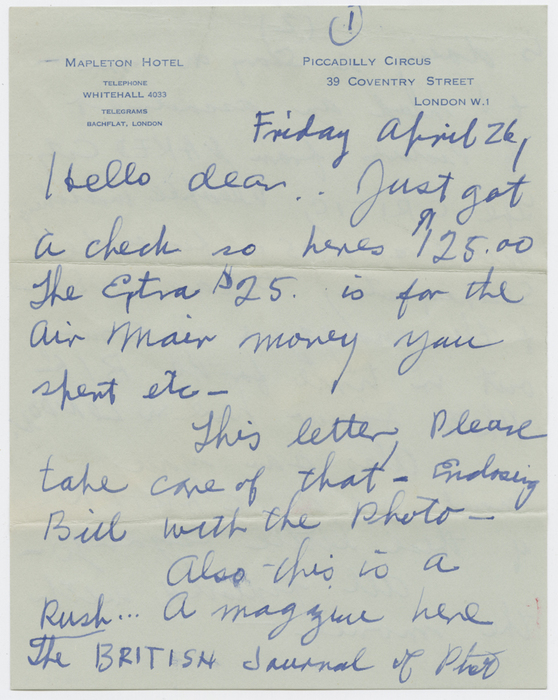 1
MAPLETON HOTEL
PICCADILLY CIRCUS
TELEPHONE
39 COVENTRY STREET
WHITEHALL 4033
LONDON W.1
TELEGRAMS
BACHFLAT, LONDON
Friday April 26,
Hello dear.. Just got
a check so heres $125.00
The Extra $25. is for the
Air Mail money you
spent etc—
This letter, Please
take care of that — Enclosing
Bill with the Photo —
Also this is a
Rush... A magazine here
The BRITISH Journal of Phot